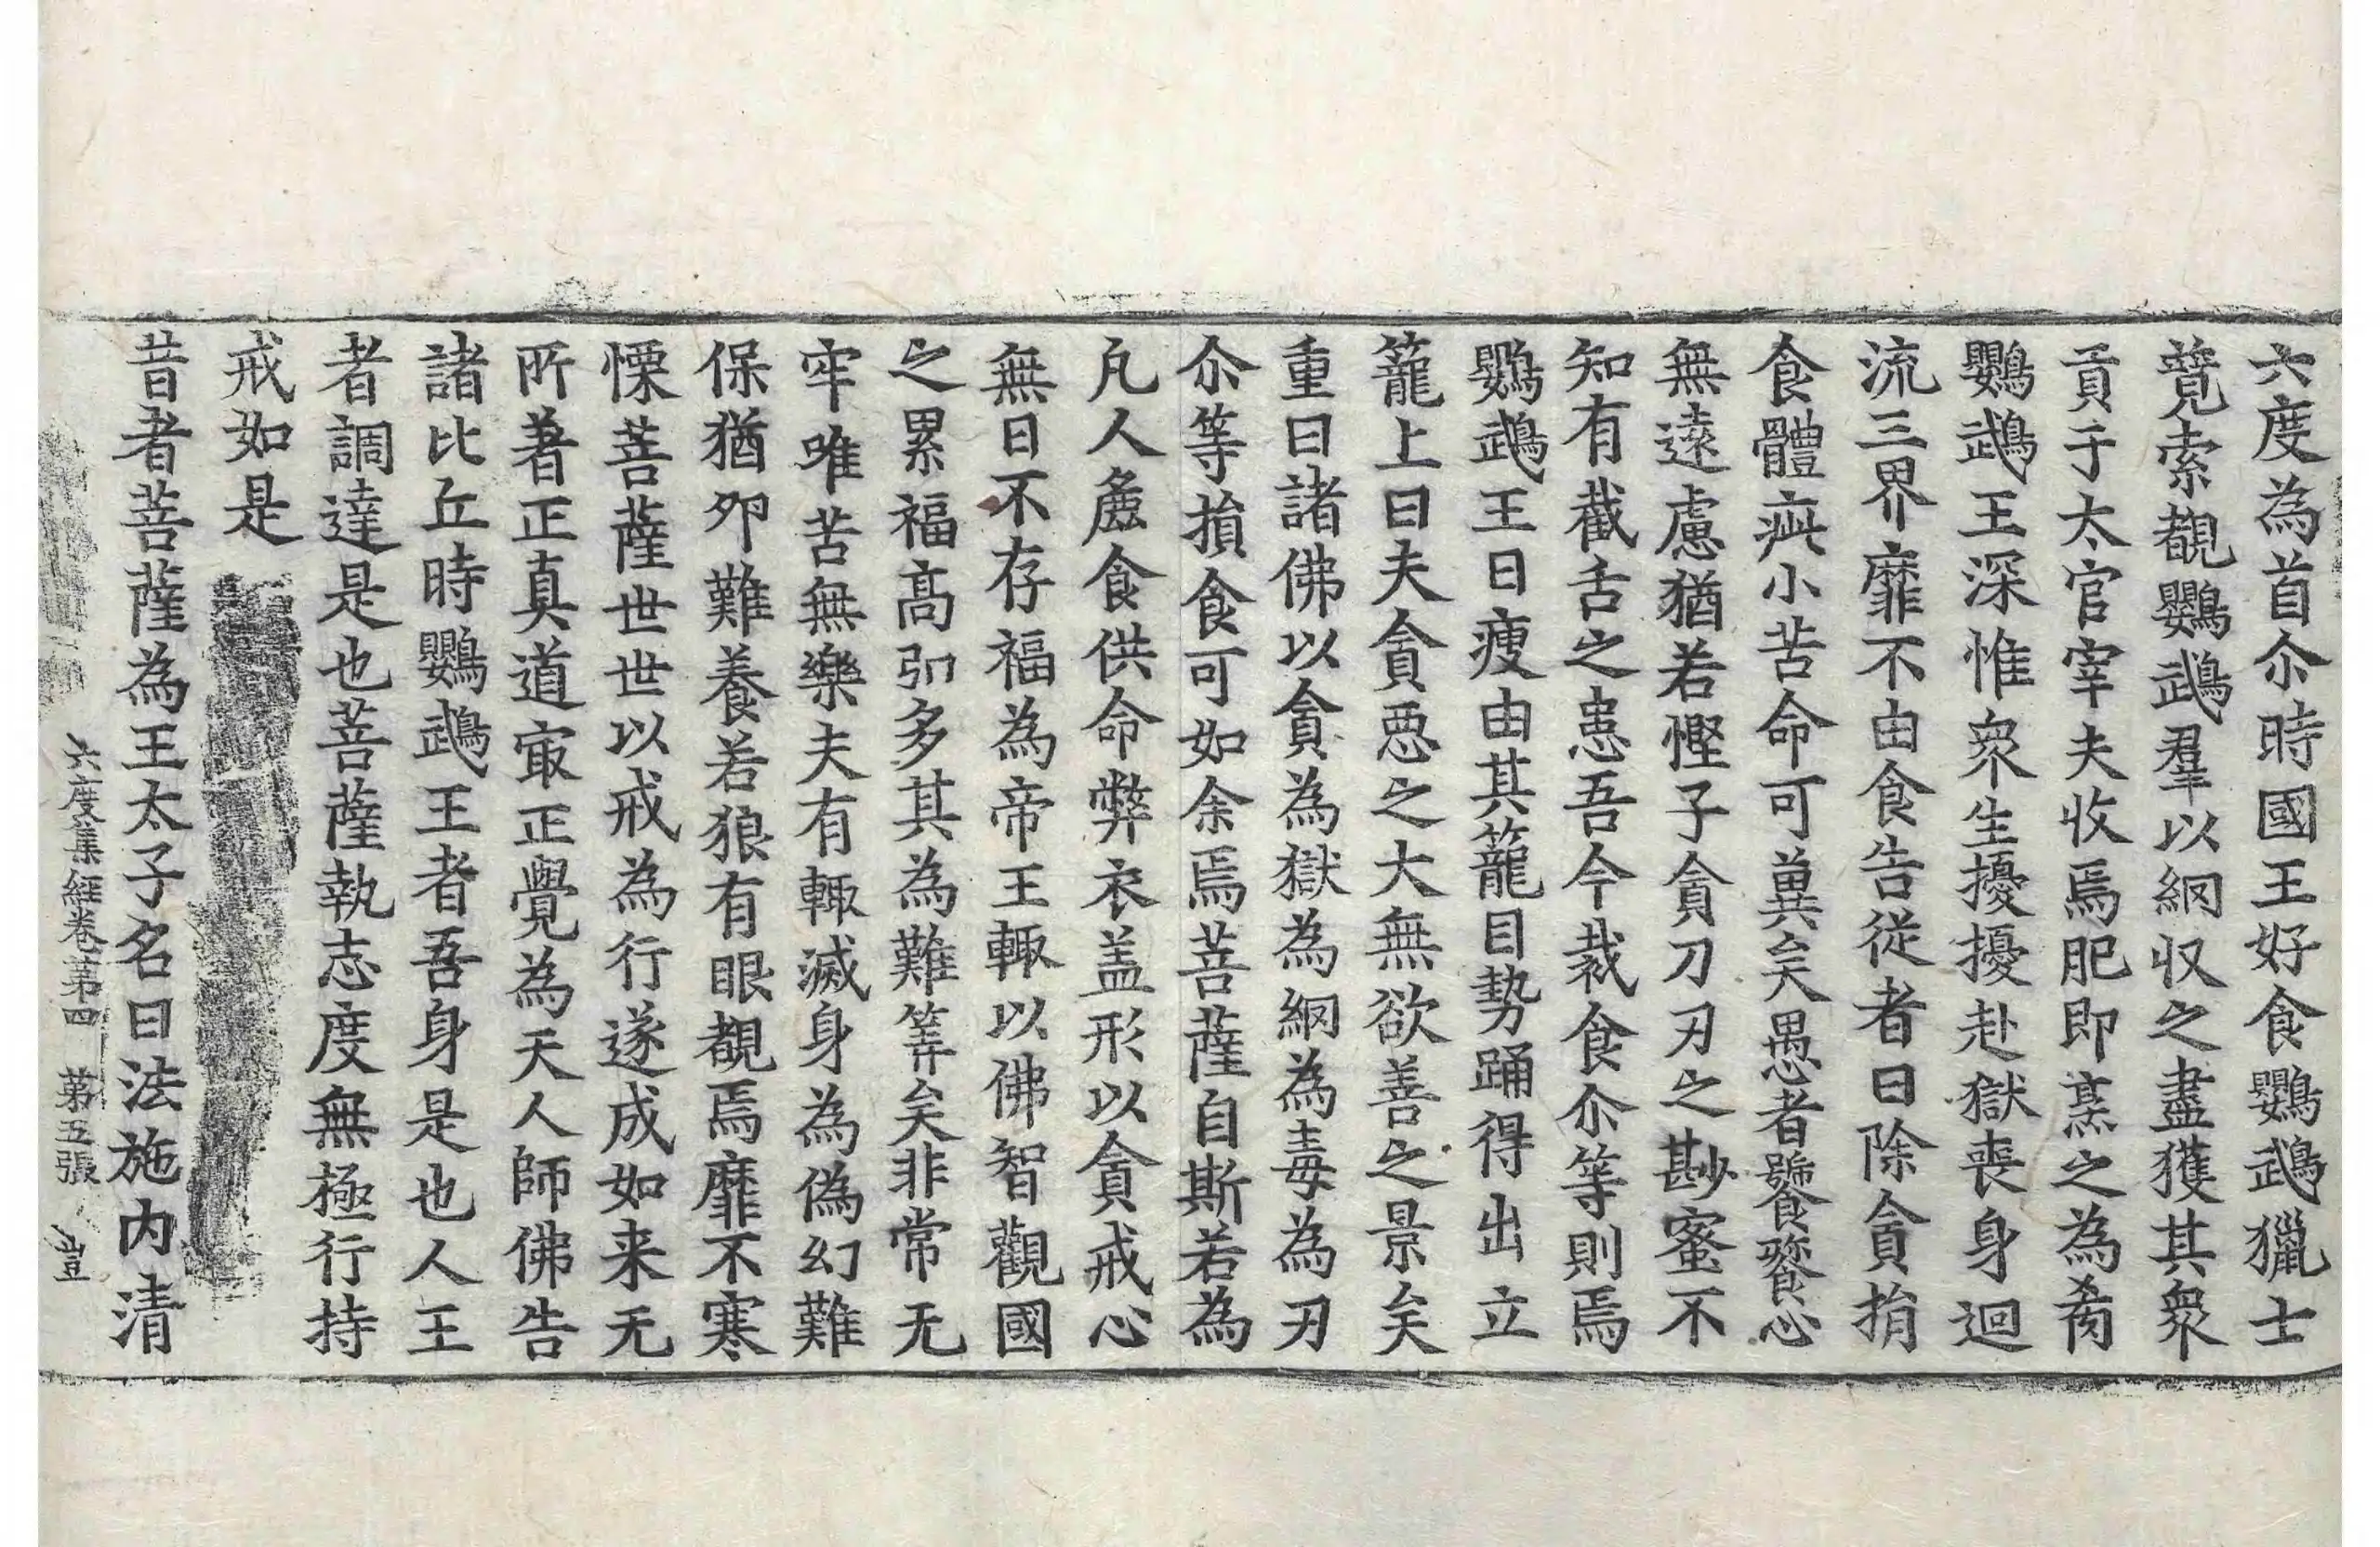 六度為首尒時國王好食鸚鵡獵士
競索覩鸚鵡羣以網収之盡獲其衆
貢于太官宰夫收焉肥即烹之為肴
鸚鵡王深惟衆生擾擾赴獄喪身迴
流三界靡不由食告從者曰除貪捐
食體疵小苦命可冀矣愚者饕餮心
無遠慮猶若慳子貪刀刃之尠蜜不
知有截舌之患吾今裁食尒等則焉
鸚鵡王日瘦由其籠目勢踊得出立
籠上曰夫貪惡之大無欲善之景矣
重曰諸佛以貪為獄為網為毒為刃
尒等損食可如余焉菩薩自斯若為
凡人麁食供命弊衣盖形以貪戒心
無日不存福為帝王輙以佛智觀國
之累福高弥多其為難筭矣非常无
牢唯苦無樂夫有輙滅身為偽幻難
保猶卵難養若狼有眼覩焉靡不寒
慄菩薩世世以戒為行遂成如来无
所著正真道㝡正覺為天人師佛告
諸比丘時鸚鵡王者吾身是也人王
者調達是也菩薩執志度無極行持
戒如是
昔者菩薩為王太子名曰法施内清
六度集經卷第四 第五張 豈